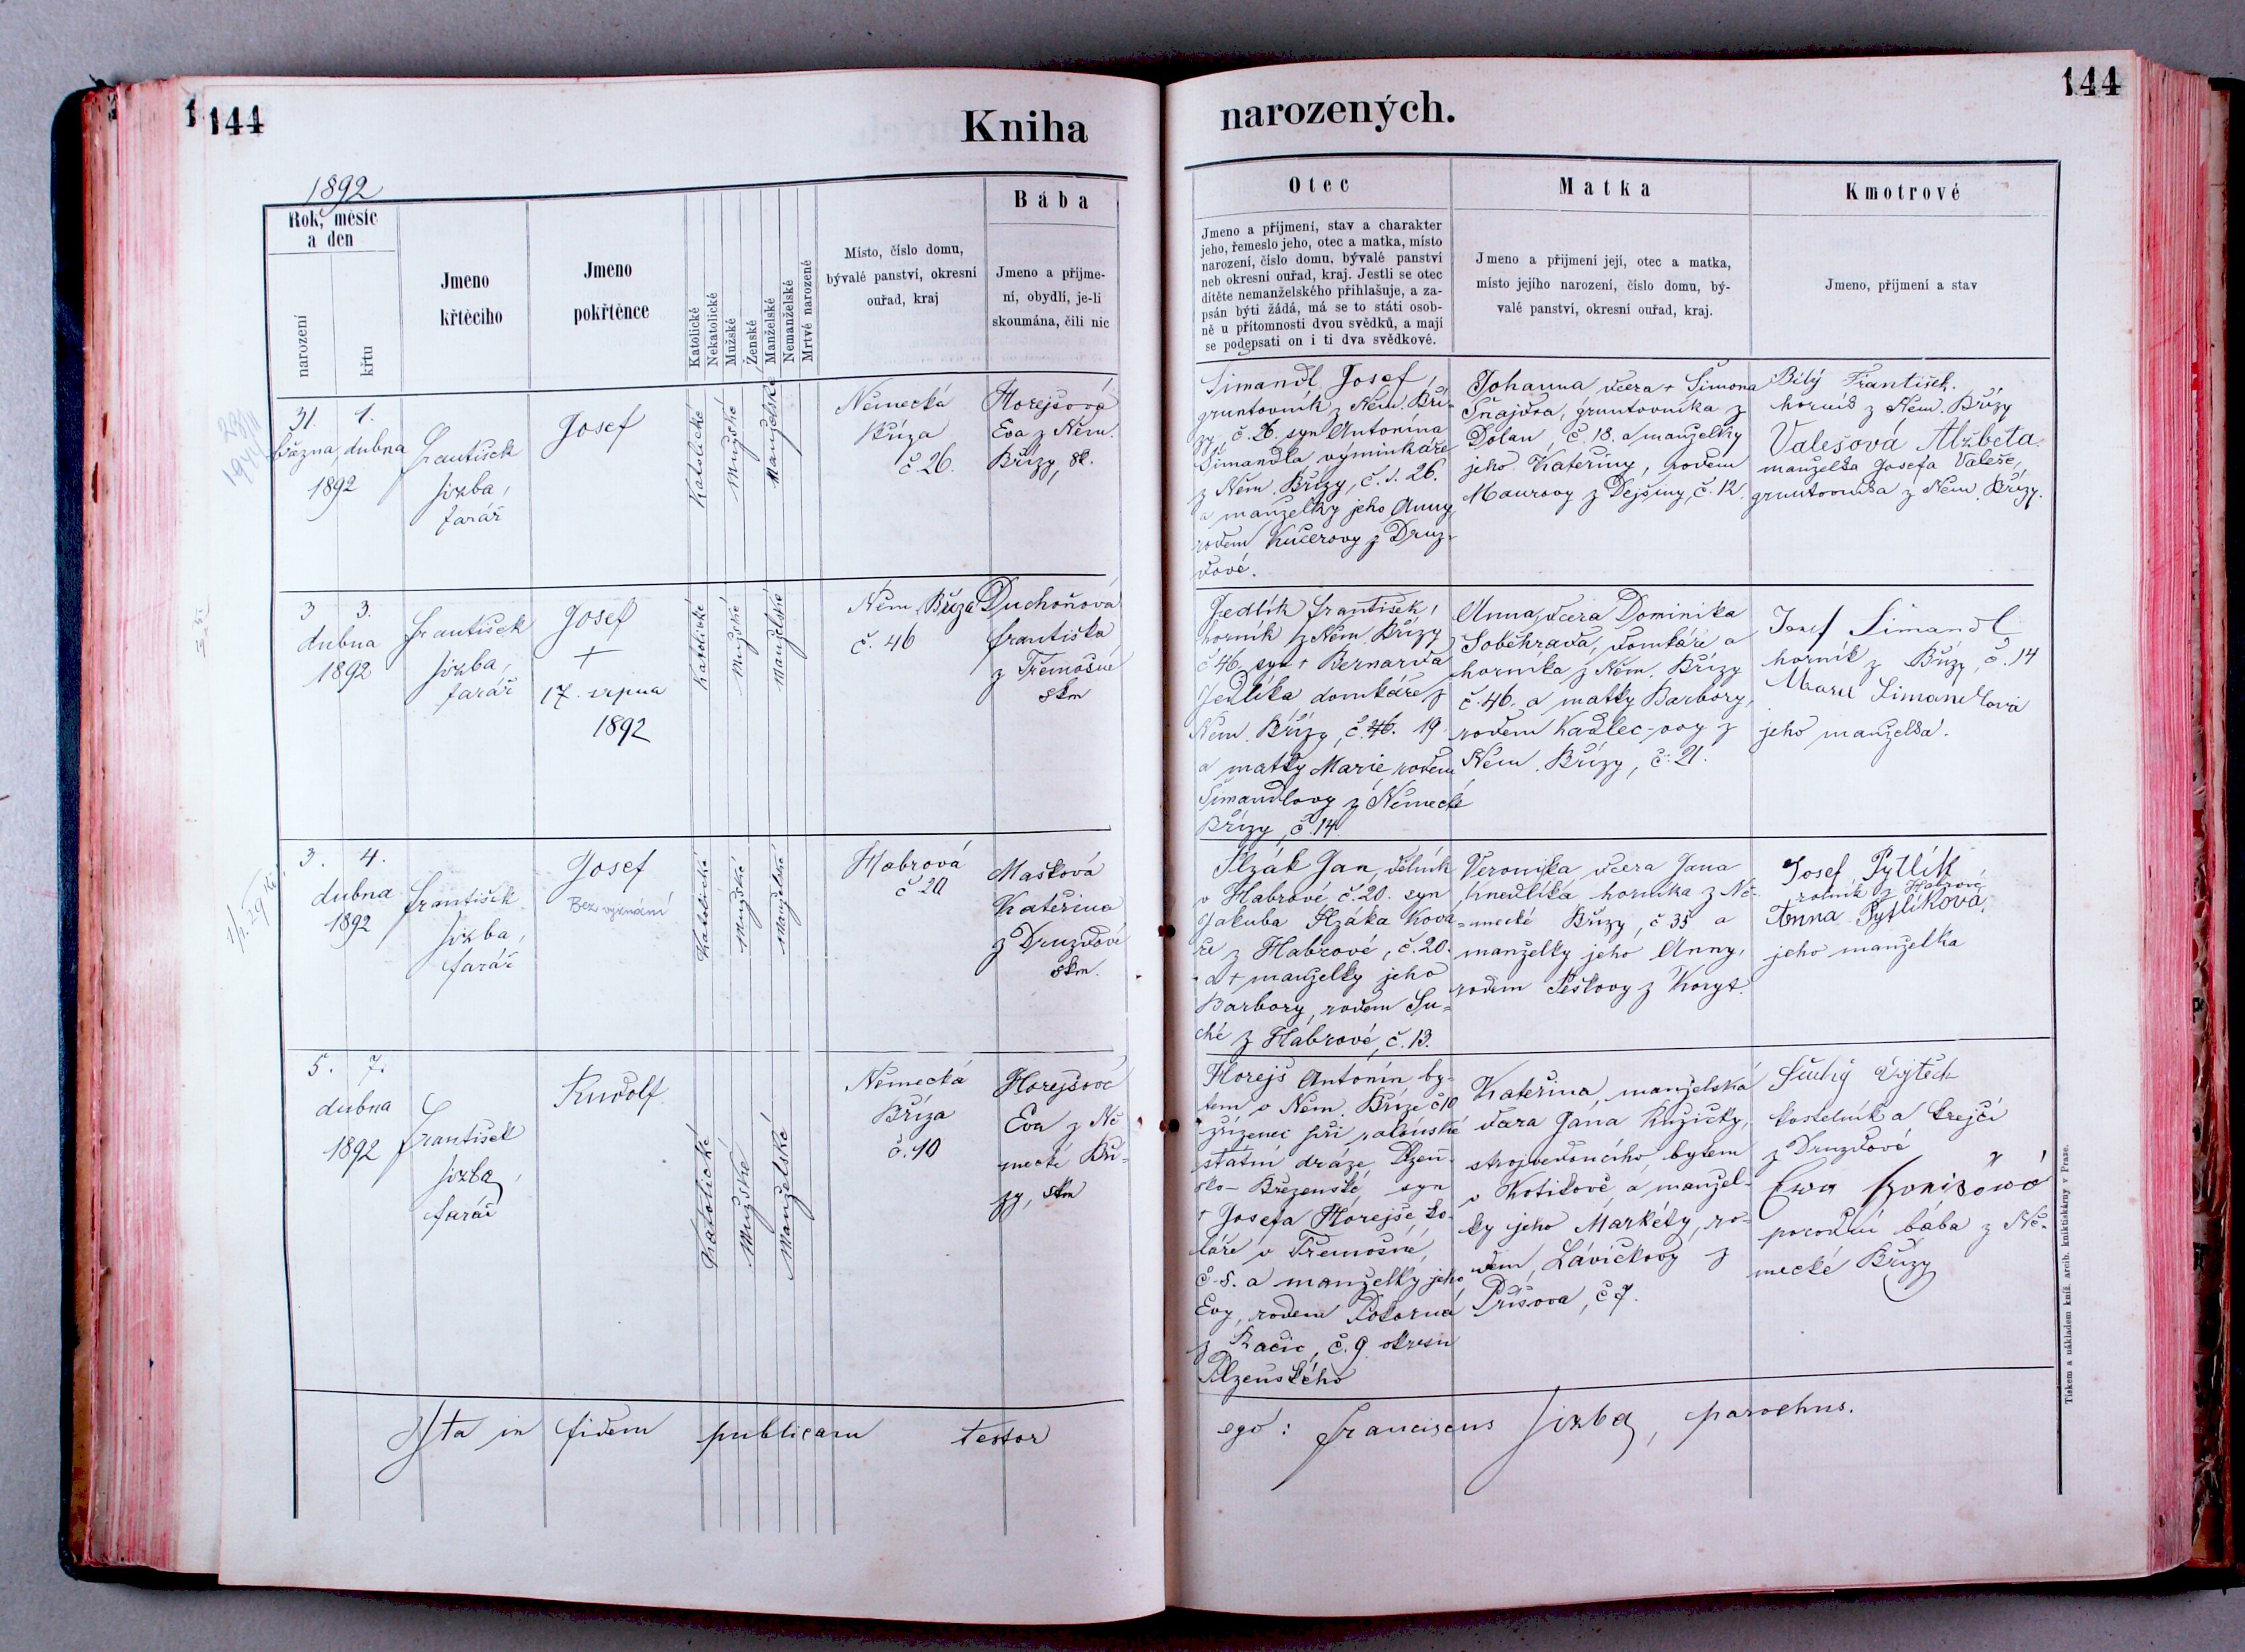 144
144
Kniha
narozených.
1892
Rok, měsíc
a den
narození
křtu
Jmeno
křtěcího
Jmeno
pokřtěnce
Katolické
Nekatolické
Mužské
Ženské
Manželské
Nemanželské
Mrtvé narozené
Místo, číslo domu,
bývalé panství, okresní
ouřad, kraj
Bába
Jmeno a příjme-
ní, obydlí, je-li
skoumána, čili nic
Otec
Jmeno a příjmení, stav a charakter
jeho, řemeslo jeho, otec a matka, místo
narození, číslo domu, bývalé panství
neb okresní ouřad, kraj. Jestli se otec
dítěte nemanželského přihlašuje, a za-
psán býti žádá, má se to státi osob-
ně u přítomnosti dvou svědků, a mají
se podepsati on i ti dva svědkové.
Matka
Jmeno a příjmení její, otec a matka,
místo jejího narození, číslo domu, bý-
valé panství, okresní ouřad, kraj.
Kmotrové
Jmeno, příjmení a stav
31. 1.
března dubna
1892
František
Jizba,
farář
Josef
Katolické
Mužské
Manželské
Německá
Bříza
č 26.
Horejšová
Eva z Něm.
Břízy, sk.
Šimandl Josef,
gruntovník z Něm. Bří-
zy, č. 26. syn Antonína
Šimandla výminkáře
z Něm. Břízy, č. 26.
a manželky jeho Anny
rodem Kučerovy z Druz-
dové.
Johanna dcera + Šimona
Šnajdra, gruntovníka z
Dolan, č. 18. a manželky
jeho Kateřiny, rodem
Maurovy z Dejšiny, č. 12.
Bílý František.
horník z Něm. Břízy
Valešová Alžběta
manželka Josefa Valeše,
gruntovníka z Něm. Břízy.
3 3.
dubna
1892
František
Jizba,
farář
Josef
+
17. srpna
1892
Katolické
Mužské
Manželské
Něm. Bříza
č. 46
Duchoňová
Františka
z Třemošné
skm
Jedlík František,
horník z Něm. Břízy
č 46, syn + Bernarda
Jedlíka domkáře z
Něm. Břízy, č. 46. 19
a matky Marie rodem
Šimandlovy z Německé
Břízy, č. 14
Anna, dcera Dominika
Soběhrada, domkáře a
horníka z Něm. Břízy
č. 46. a matky Barbory,
rodem Kadlec-ovy z
Něm. Břízy, č. 21.
Josef Šimandl
horník z Břízy č. 14
Marie Šimandlová
jeho manželka.
3. 4.
dubna
1892
František
Jizba,
farář
Josef
Bez vyznání
Katolické
Mužské
Manželské
Habrová
č 20
Mašková
Kateřina
z Druzdové
skm.
Slzák Jan, dělník
v Habrové č. 20. syn
Jakuba Slzáka Ková-
ře z Habrové, č. 20.
a + manželky jeho
Barbory, rodem Su-
ché z Habrové, č. 13.
Veronika dcera Jana
Knedlíka horníka z Ně-
mecké Břízy, č 35 a
manželky jeho Anny,
rodem Peškovy z Koryt.
Josef Pytlík
rolník z Habrové
Anna Pytlíková,
jeho manželka
5. 7.
dubna
1892
František
Jizba,
farář
Rudolf
Katolické
Mužské
Manželské
Německá
Bříza
č. 10
Horejšová
Eva z Ně
mecké Bří-
zy, skm
Horejš Antonín by-
tem v Něm. Bříze č 10
zřízenec při
státní dráze Plzeň-
sko- Březenské, syn
+ Josefa Horejše ko-
láře v Třemošné,
č. 8. a manželky jeho
Evy, rodem Pokorná
z Račic, č. 9 okresu
Plzeňského
Kateřina, manželská
dcera Jána Kuzičky,
strojvedoucího, bytem
v Kotíkově, a manžel-
ky jeho Markéty, ro-
dem Lávičkovy z
Příšova, č 7.
Suchý Vojtěch
kostelník a krejčí
z Druzdové
Ewa
porodní bába z Ně-
mecké Břízy
Ita in fidem publicam testor
ego: Franciscus Jizba, parochus.
Tiskem a nákladem kníž. arcib. knihtiskárny v Praze.